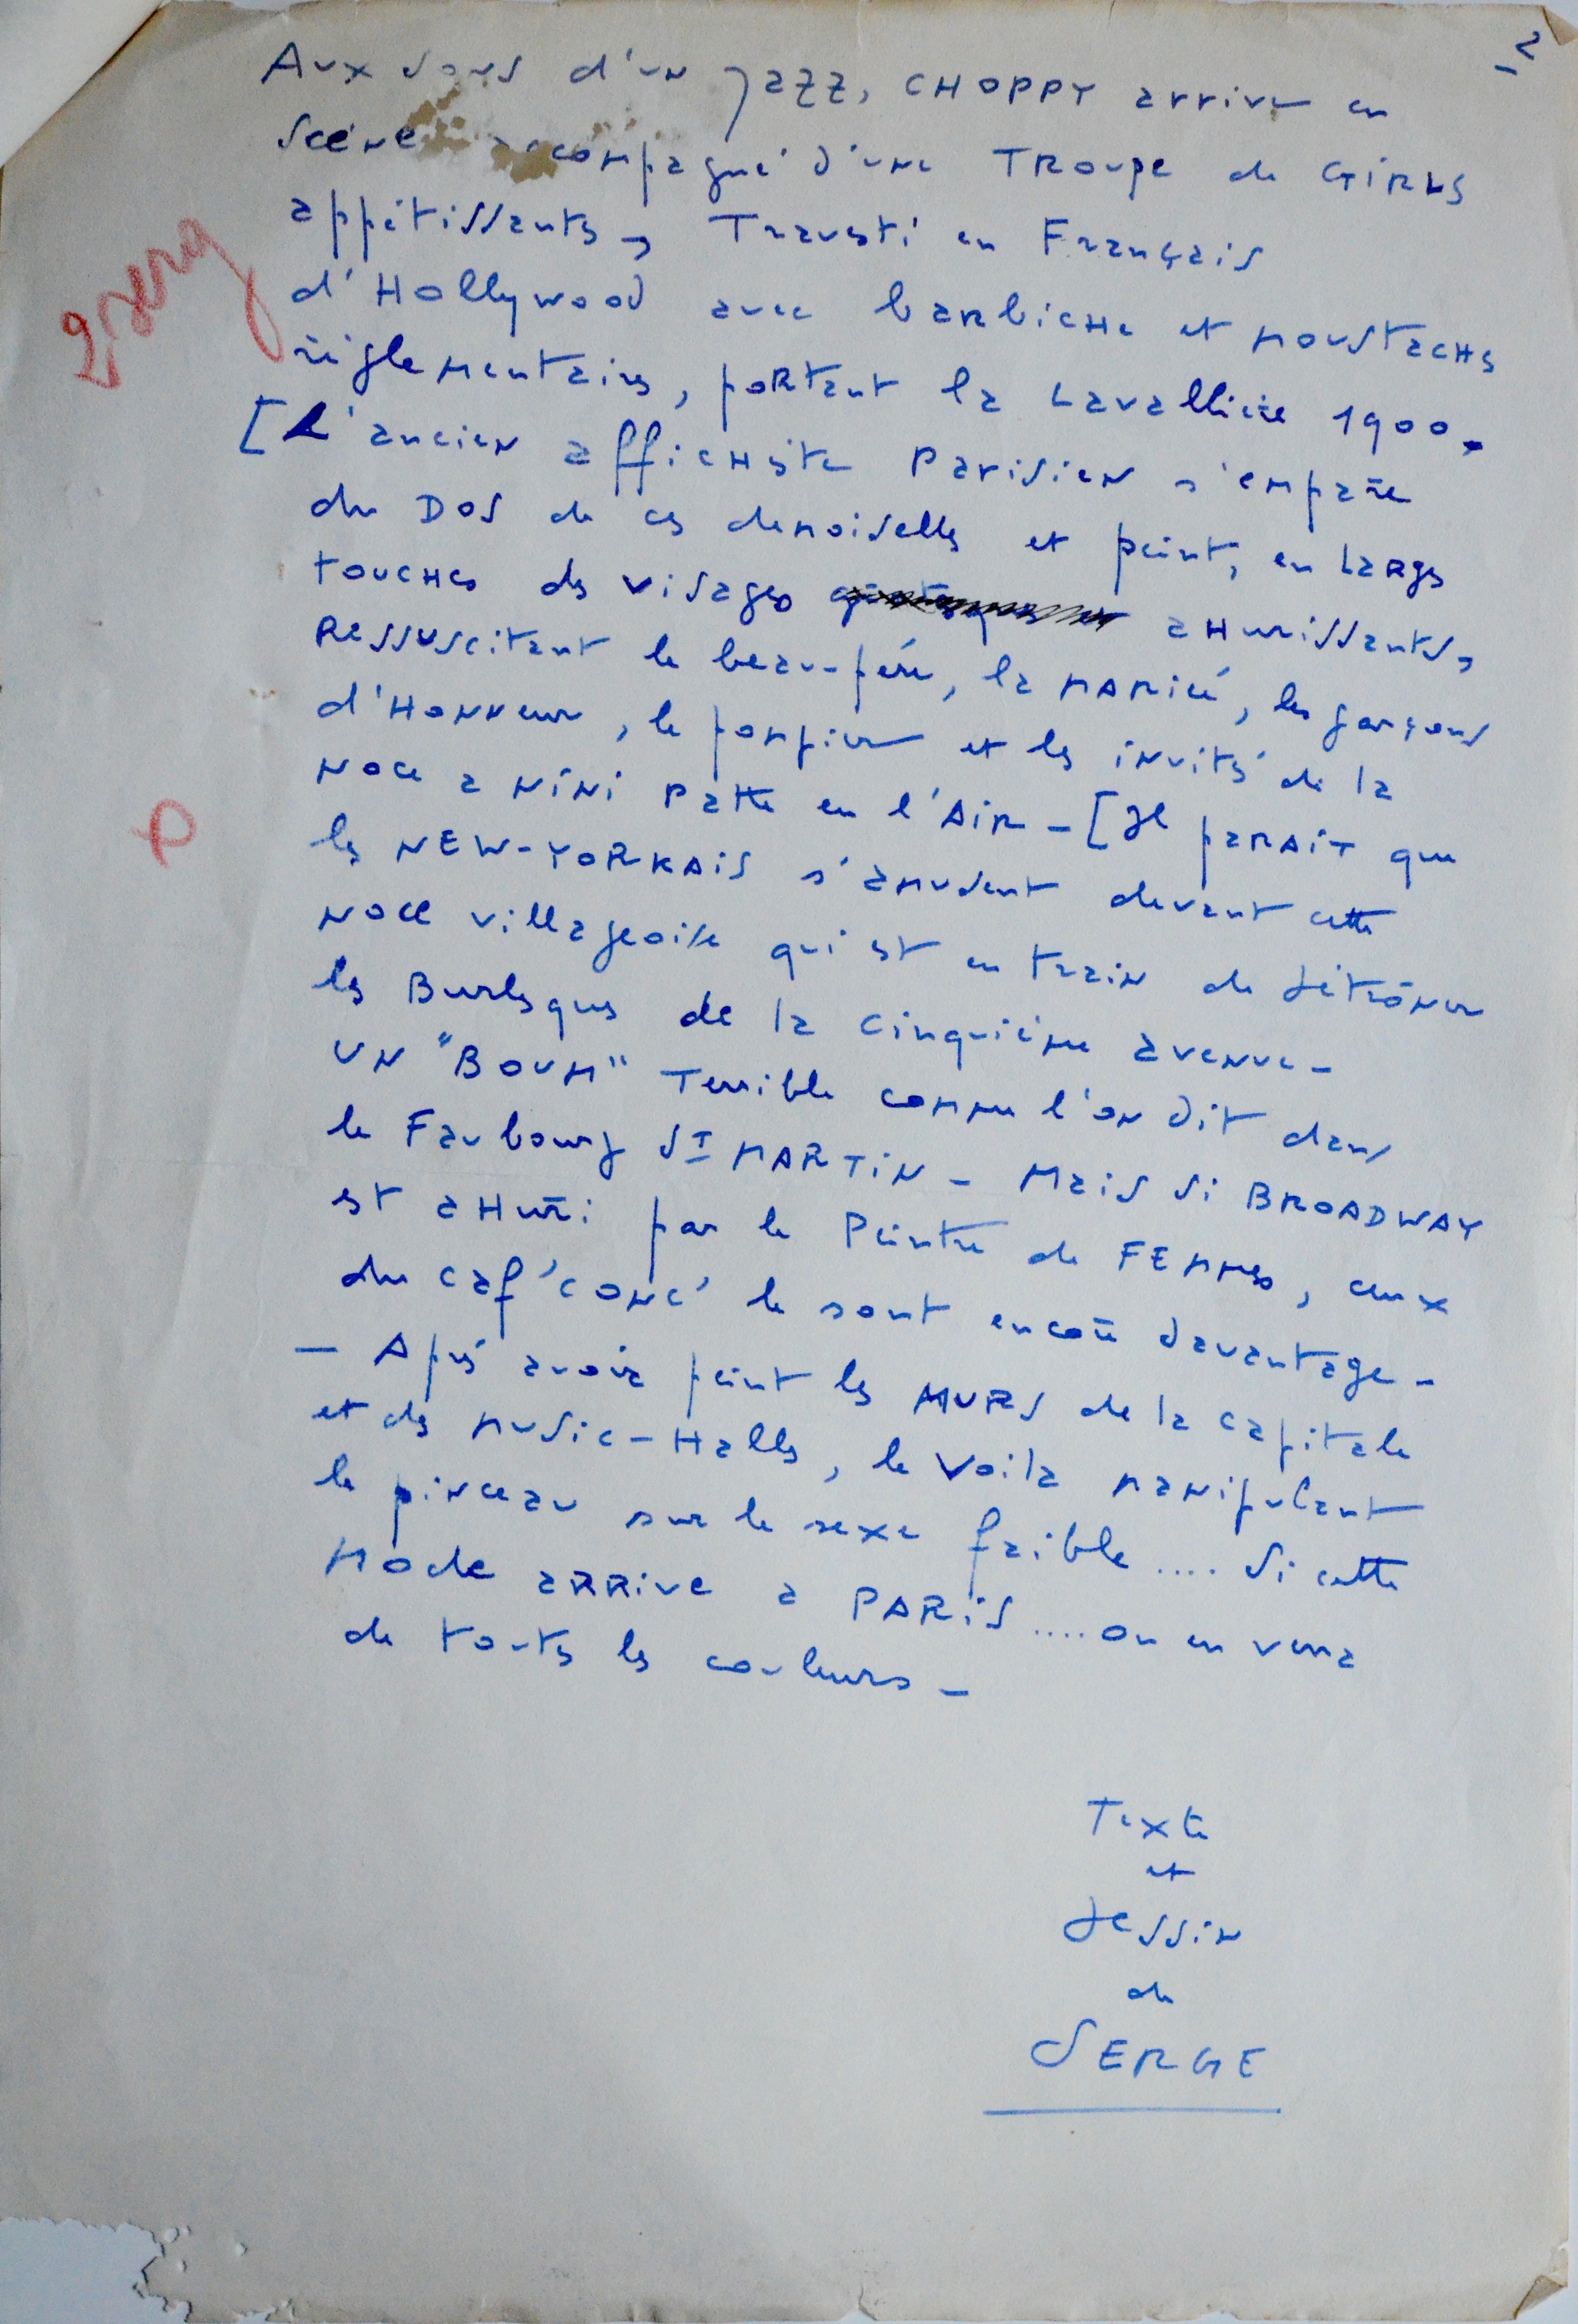 2
Aux sons d'un jazz, CHOPPY arrive en
Scène accompagné d'une TRoupe de GiRLS
appétissantes, Travesti en Français
d'Hollywood avec barbiche et moustaches
règlementaires, portant la Lavallière 1900.
[L'ancien affichiste Parisien s'empare
du DOS de ces demoiselles et peint, en larges
touches des visages ahurissants,
Ressuscitant le beau-père, la MARiée, les garçons
d'Honneur, le pompier et les invités de la
Noce a NiNi Patte en l'AiR - [Il paraiT que
les NEW-YORKAiS s'amusent devant cette
Noce villageoise qui est en train de détrôner
les Burlesques de la cinquième avenue -
UN "BOUM" Terrible comme l'on dit dans
le Faubourg ST MARTiN - Mais si BROADWAY
est ahuri par le Peintre de FEMMes, ceux
du caf'conc' le sont encore davantage -
- Après avoir peint les MURS de la capitale
et des music-Halls, le voila manipulant
le pinceau sur le sexe faible .... Si cette
mode aRRive a PARiS .... on en verra
de toutes les couleurs -
Texte
et
dessin
de
SERGE